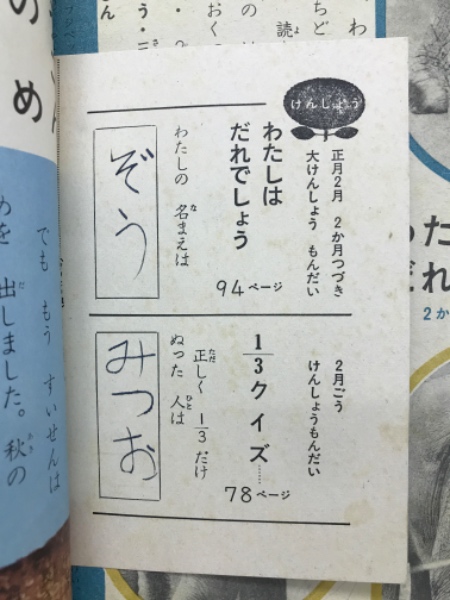 けんしょう
正月2月 2か月つづき
大けんしょう もんだい
わたしは
だれでしょう
94ページ
わたしの 名まえは
な
ぞう
2月ごう
けんしょうもんだい
1/3クイズ……
78ページ
正しく 1/3だけ
ただ
ぬった 人は
ひと
みつお
の
め
でも もう すいせんは
めを 出しました。秋の
だ
あき
た
だれ
2か